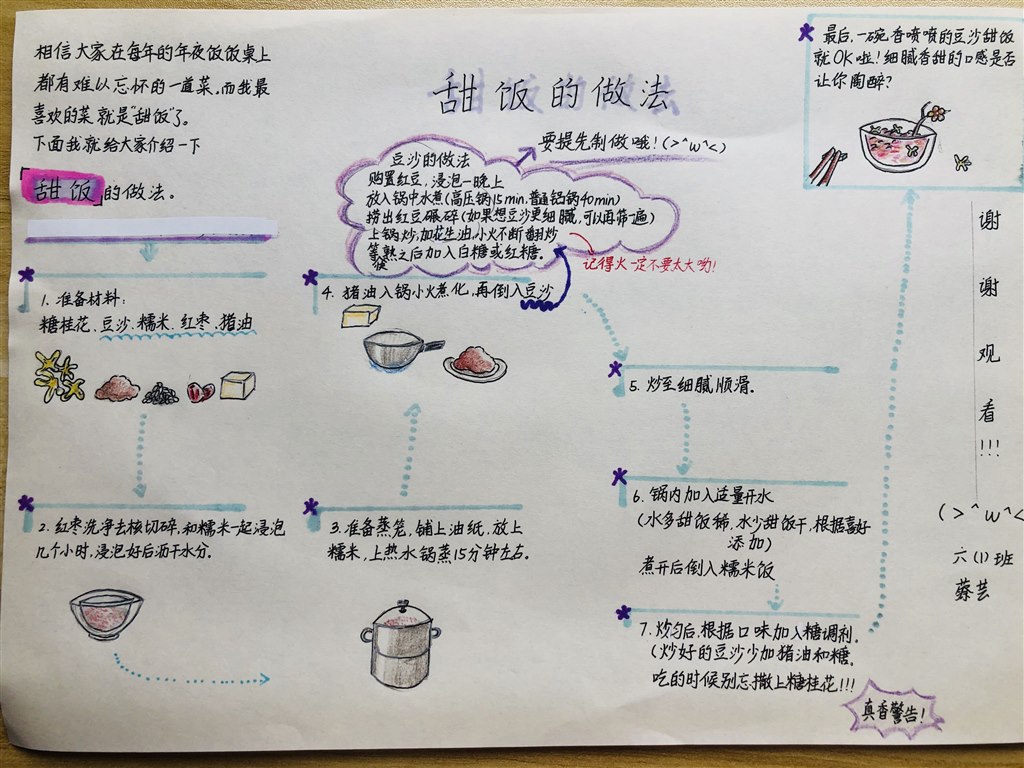 甜饭的做法
相信大家在每年的年夜饭饭桌上
都有难以忘怀的一道菜,而我最
喜欢的菜就是"甜饭"了。
下面我就给大家介绍一下
「甜饭」的做法。
1. 准备材料:
糖桂花、豆沙、糯米、红枣、猪油
2. 红枣洗净去核切碎,和糯米一起浸泡
几个小时,浸泡好后沥干水分。
3. 准备蒸笼,铺上油纸,放上
糯米,上热水锅蒸15分钟左右。
4. 猪油入锅小火煮化,再倒入豆沙
豆沙的做法
要提先制做哦!(>^w^<)
购置红豆,浸泡一晚上
放入锅中水煮(高压锅15min,普通铝锅40min)
捞出红豆碾碎(如果想豆沙更细腻,可以再筛一遍)
上锅炒,加花生油,小火不断翻炒
等熟之后加入白糖或红糖。
记得火一定不要太大哟!
5. 炒至细腻顺滑。
6. 锅内加入适量开水
(水多甜饭稀,水少甜饭干,根据喜好
添加)
煮开后倒入糯米饭
7. 炒匀后,根据口味加入糖调剂。
(炒好的豆沙少加猪油和糖。
吃的时候别忘撒上糖桂花!!!
真香警告!
最后,一碗香喷喷的豆沙甜饭
就OK啦!细腻香甜的口感是否
让你陶醉?
谢
谢
观
看
!!!
(>^w^<
六(1)班
蔡芸